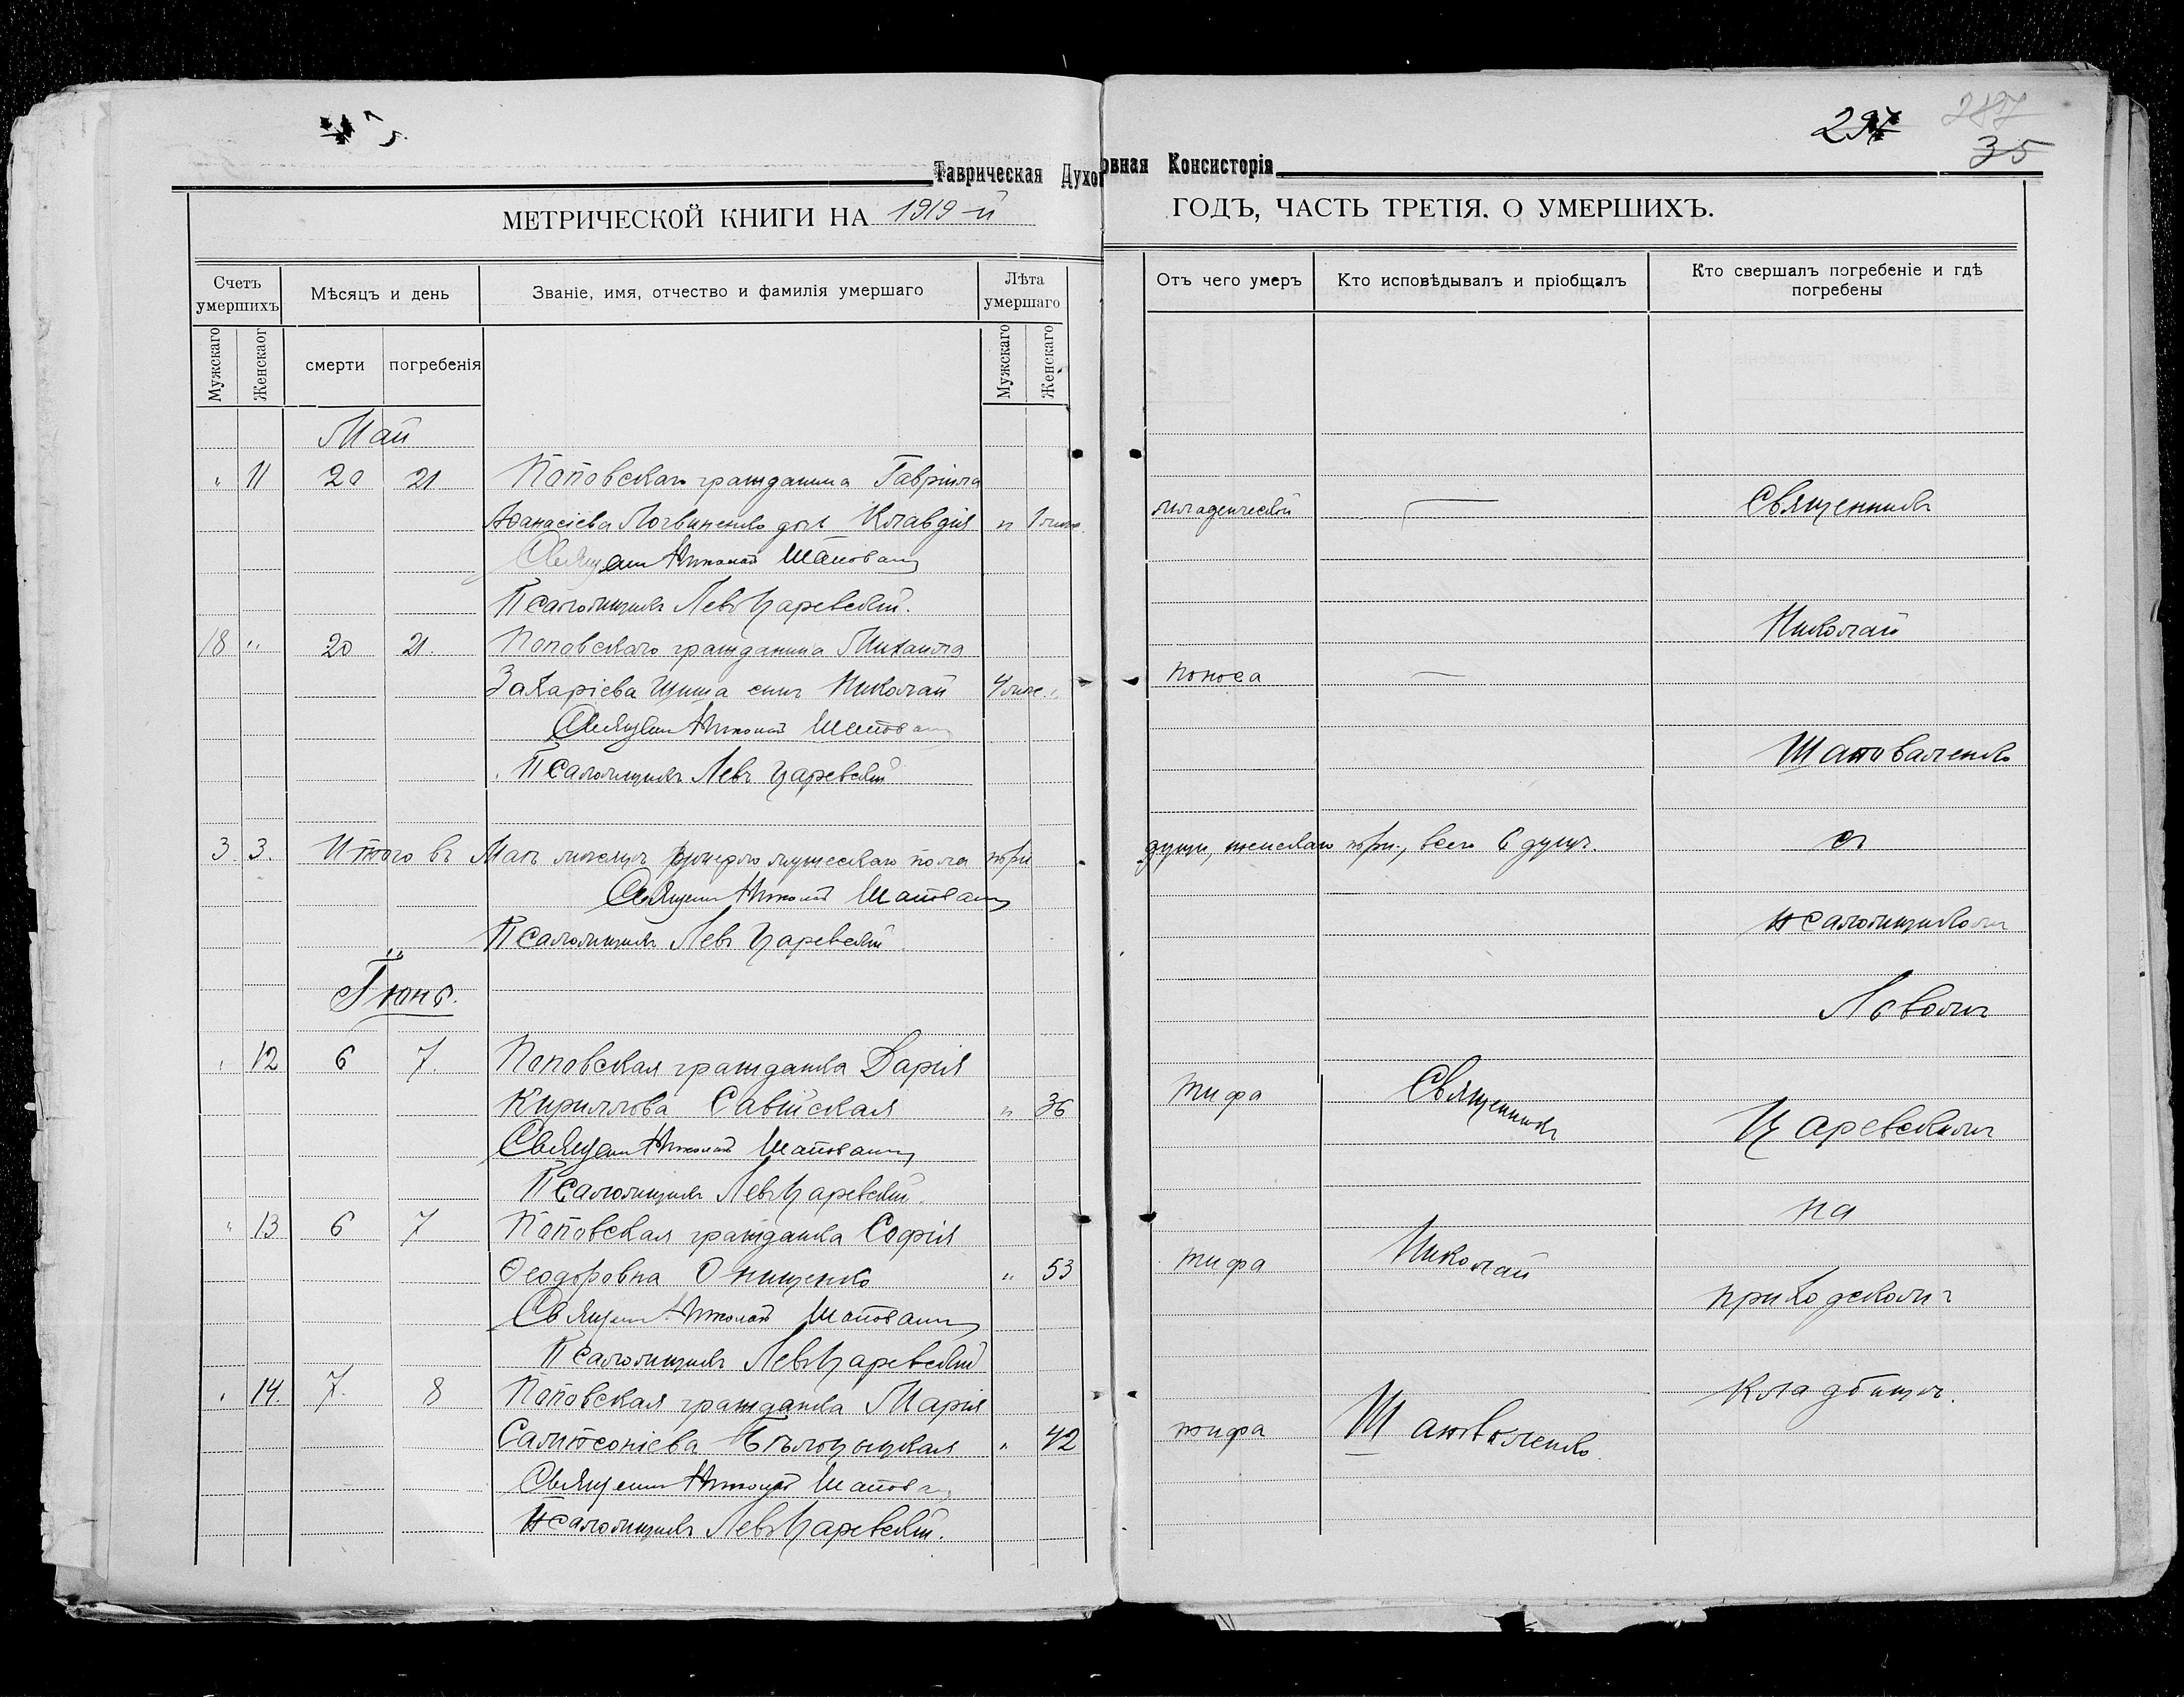 297 287
35
Таврическая Духовная Консисторія
МЕТРИЧЕСКОЙ КНИГИ НА 1919-й ГОДЪ, ЧАСТЬ ТРЕТІЯ. О УМЕРШИХЪ.
Счетъ умершихъ
Мужскаго
Женскаог
Мѣсяцъ и день
смерти
погребенія
Званіе, имя, отчество и фамилія умершаго
Лѣта умершаго
Мужскаго
Женскаго
Отъ чего умеръ
Кто исповѣдывалъ и пріобщалъ
Кто свершалъ погребеніе и гдѣ погребены
Май
" 11 20 21 Поповскаго гражданина Гавріила
Аѳанасіева Логвиненко дочь Клавдія " 1 младенческой — Священникъ
Священ Николай Шаповал
Псаломщикъ Левъ Царевскій.
18 " 20 21. Поповскаго гражданина Михаила Николай
Захаріева Шиша сынъ Николай 4 " поноса —
Священ Николай Шаповал Шаповаленко
Псаломщикъ Левъ Царевскій
3. 3. Итого въ Маѣ мѣсяцѣ умерло мужескаго пола три души, женскаго три, всего 6 душъ. съ
Священ Николай Шаповал
Псаломщикъ Левъ Царевскій псаломщикомъ
Іюнь. Львомъ
" 12 6 7. Поповская гражданка Дарія
Кириллова Савійская " 36 тифа Священникъ Царевскимъ
Священ Николай Шаповал
Псаломщикъ Левъ Царевскій.
" 13 6 7 Поповская гражданка Софія на
Ѳеодоровна Онищенко " 53 тифа Николай приходскомъ
Священ Николай Шаповал
Псаломщикъ Левъ Царевскій
" 14. 7. 8 Поповская гражданка Марія кладбищѣ.
Сампсоніева Бѣлоцыцкая " 42 тифа Шаповаленко
Священ Николай Шаповал
Псаломщикъ Левъ Царевскій.